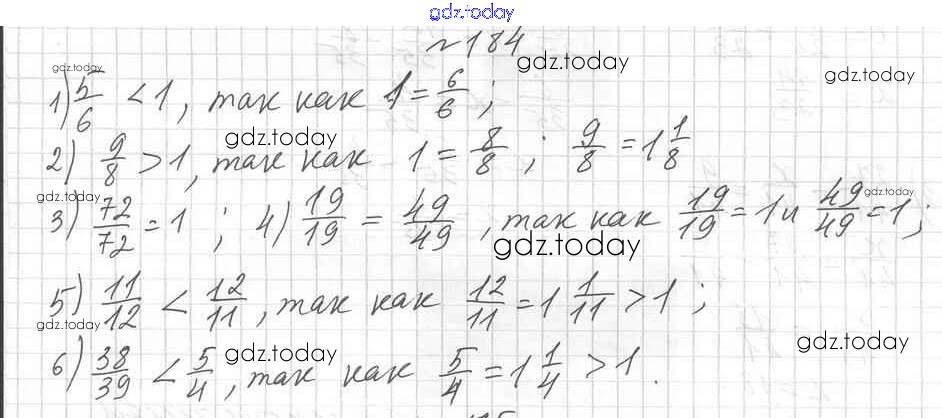 gdz.today
№184
gdz.today
gdz.today
gdz.today
1) 5/6 < 1, так как 1 = 6/6;
gdz.today
2) 9/8 > 1, так как 1 = 8/8; 9/8 = 1 1/8
gdz.today
gdz.today
3) 72/72 = 1; 4) 19/19 = 49/49, так как 19/19 = 1 и 49/49 = 1;
gdz.today
5) 11/12 < 12/11, так как 12/11 = 1 1/11 > 1;
gdz.today
gdz.today
gdz.today
6) 38/39 < 5/4, так как 5/4 = 1 1/4 > 1.